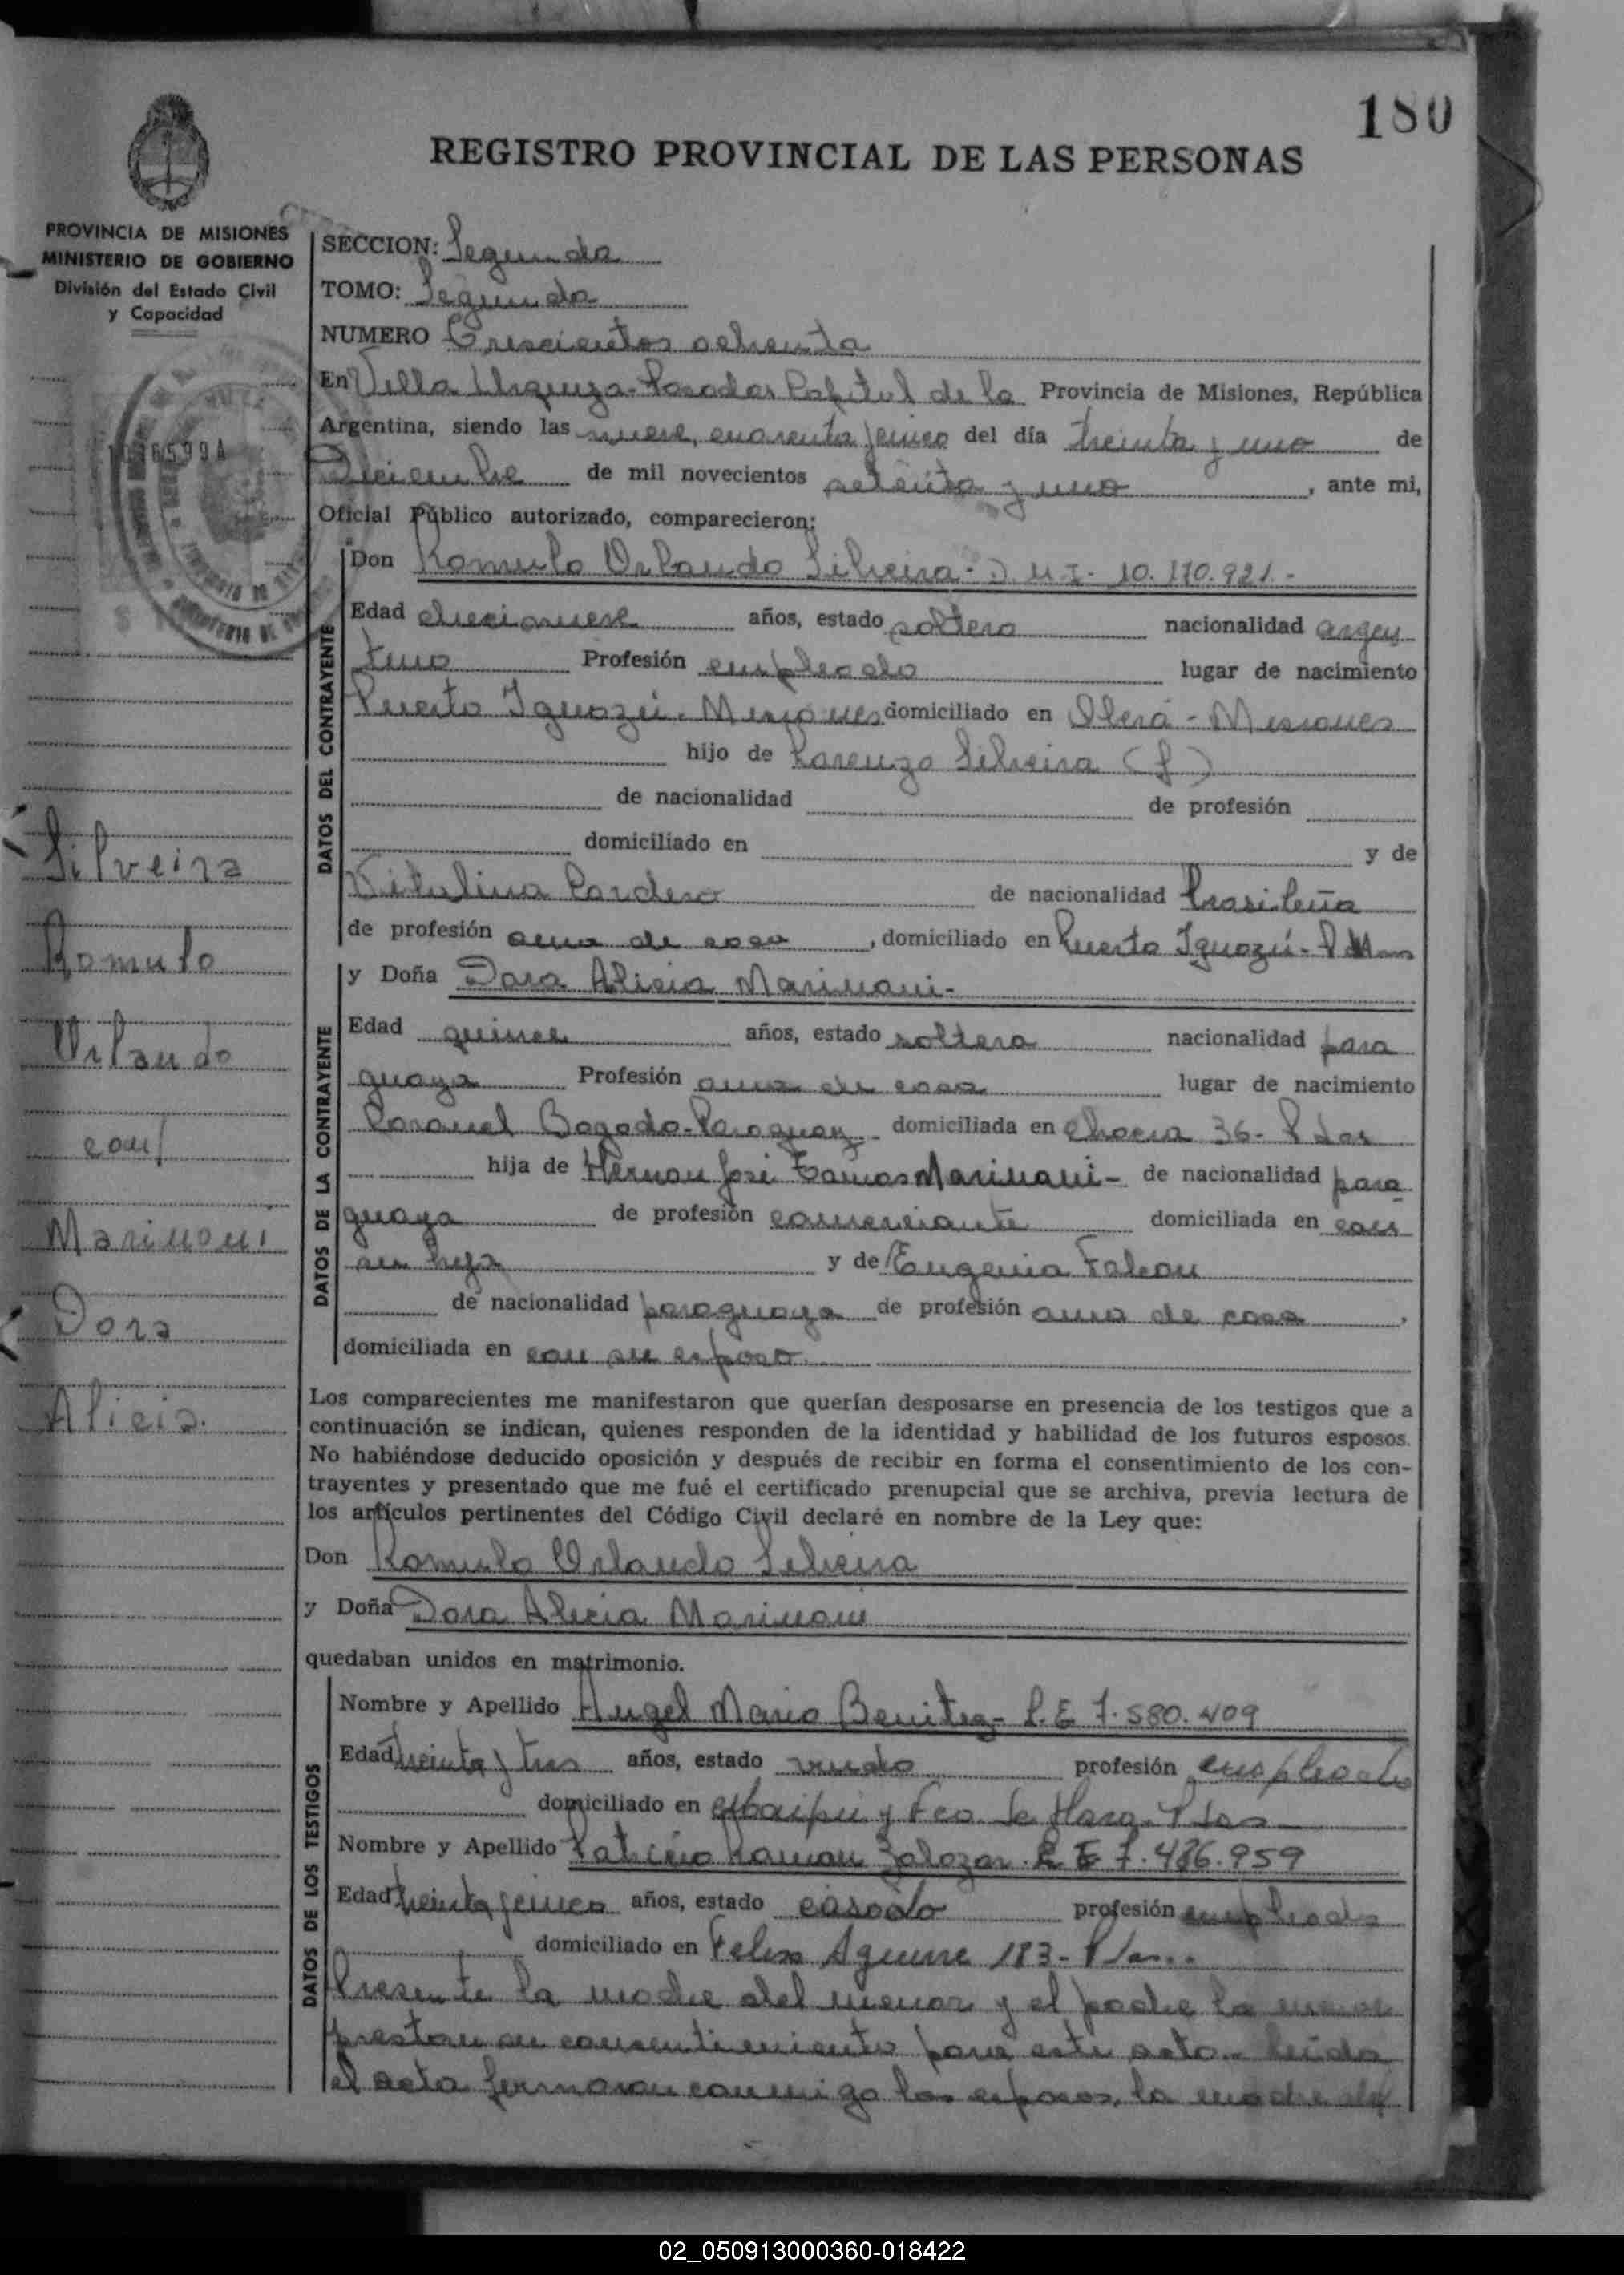 180
REGISTRO PROVINCIAL DE LAS PERSONAS
PROVINCIA DE MISIONES
MINISTERIO DE GOBIERNO
División del Estado Civil
y Capacidad
SECCION: Segunda
TOMO: Segundo
NUMERO Trescientos ochenta
En Villa Urquiza-Posadas Capital de la Provincia de Misiones, República
Argentina, siendo las nueve, cuarenta y cinco del día treinta y uno de
Diciembre de mil novecientos setenta y uno, ante mi,
Oficial Público autorizado, comparecieron:
DATOS DEL CONTRAYENTE
Don Romulo Orlando Silveira- D.N.I- 10.170.921.-
Edad diecinueve años, estado soltero nacionalidad argen
tino Profesión empleado lugar de nacimiento
Puerto Iguazú- Misiones domiciliado en Oberá - Misiones
hijo de Lorenzo Silveira (f)
de nacionalidad de profesión
domiciliado en y de
Vitalina Cordero de nacionalidad brasileña
de profesión ama de casa, domiciliado en Puerto Iguazú-
DATOS DE LA CONTRAYENTE
y Doña Dora Alicia Marinoni-
Edad quince años, estado soltera nacionalidad para
guaya Profesión ama de casa lugar de nacimiento
Coronel Bogado-Paraguay- domiciliada en Chacra 36- Pdas
hija de Hernan José Tomas Marinoni- de nacionalidad para
guaya de profesión comerciante domiciliada en con
su hija y de Eugenia Falcon
de nacionalidad paraguaya de profesión ama de casa,
domiciliada en con su esposo.
Los comparecientes me manifestaron que querían desposarse en presencia de los testigos que a
continuación se indican, quienes responden de la identidad y habilidad de los futuros esposos.
No habiéndose deducido oposición y después de recibir en forma el consentimiento de los con-
trayentes y presentado que me fué el certificado prenupcial que se archiva, previa lectura de
los artículos pertinentes del Código Civil declaré en nombre de la Ley que:
Don Romulo Orlando Silveira
y Doña Dora Alicia Marinoni
quedaban unidos en matrimonio.
DATOS DE LOS TESTIGOS
Nombre y Apellido Angel Mario Benitez- L.E 7.580.409
Edad treinta y tres años, estado viudo profesión empleado
domiciliado en y Fco. de Haro- Pdas
Nombre y Apellido Patricio Ramon Zalazar L E 7.486.959
Edad treinta y cinco años, estado casado profesión empleado
domiciliado en Felix Aguirre 183- Pdas..
Presente la madre del menor y el padre la menor
prestan su consentimiento para este acto.- Leida
el acta firmaron conmigo los esposos, la madre del
Silveira
Romulo
Orlando
con/
Marinoni
Dora
Alicia.
02_050913000360-018422